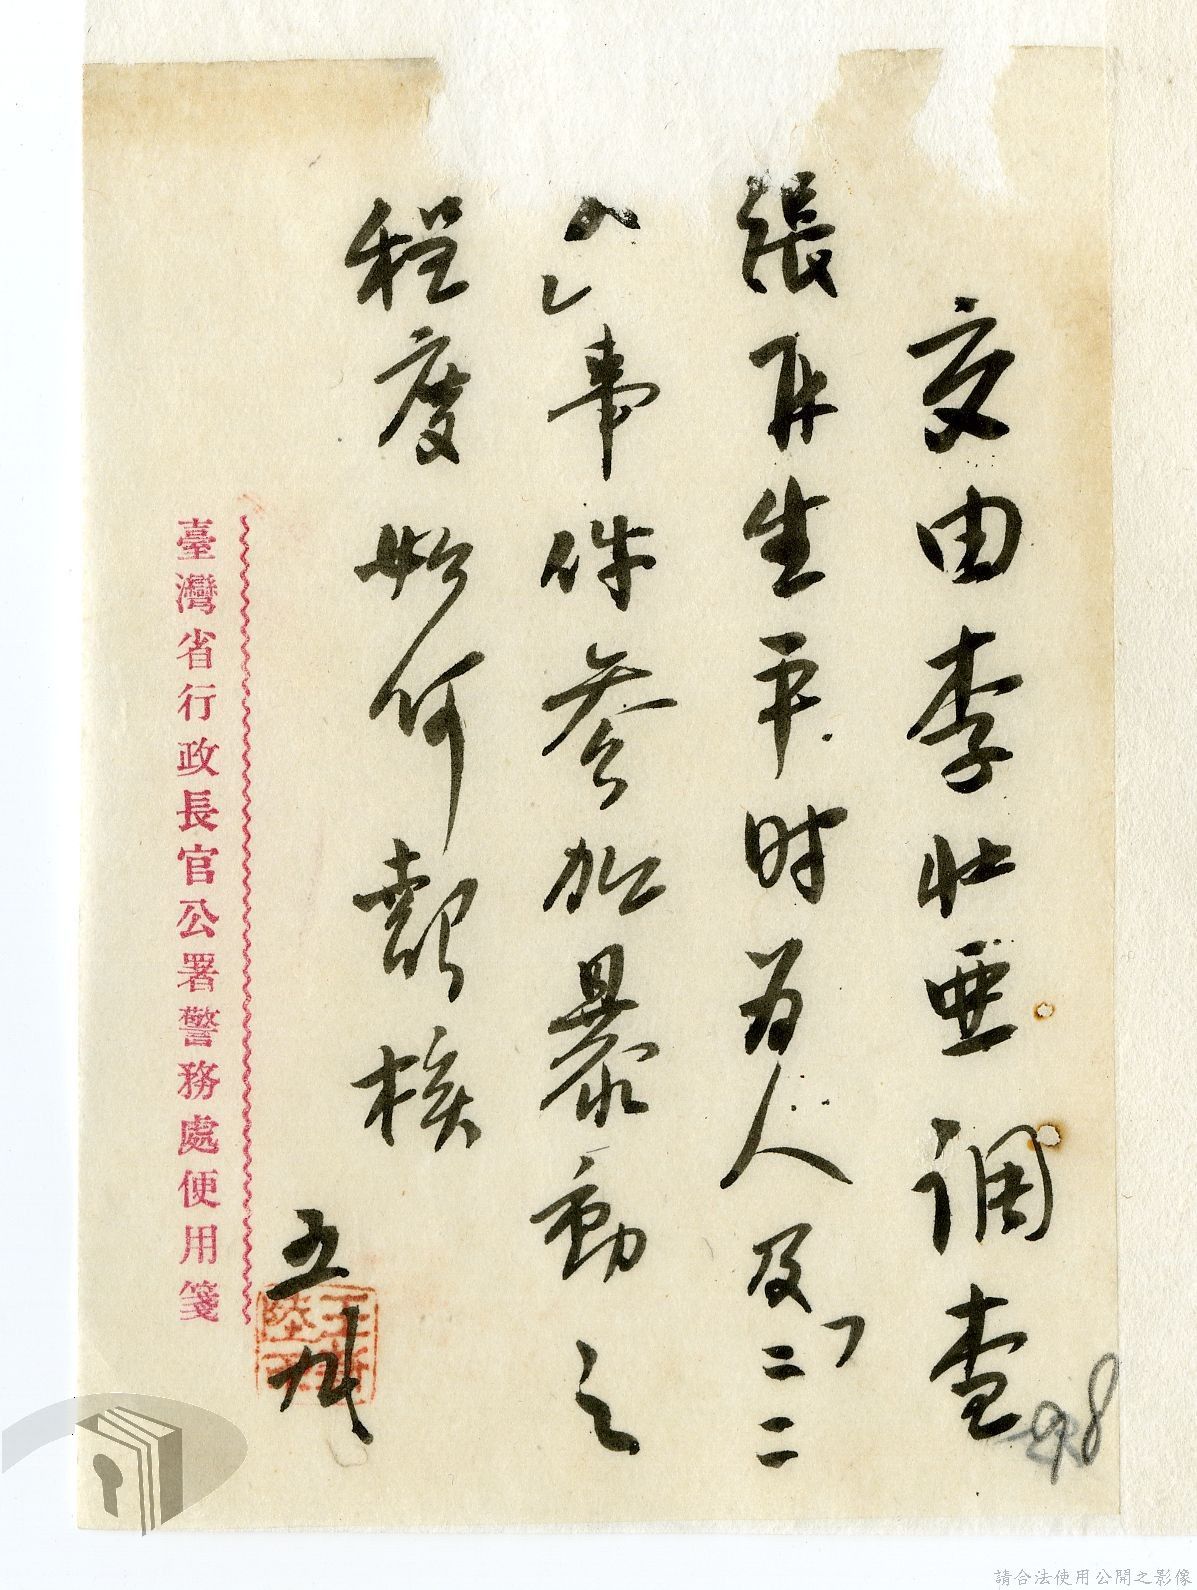 交由李壯亜调查
張再生平时为人及「二二
八」事件参加暴動之
程度如何報核
五 九
臺灣省行政長官公署警務處便用箋
98
請合法使用公開之影像